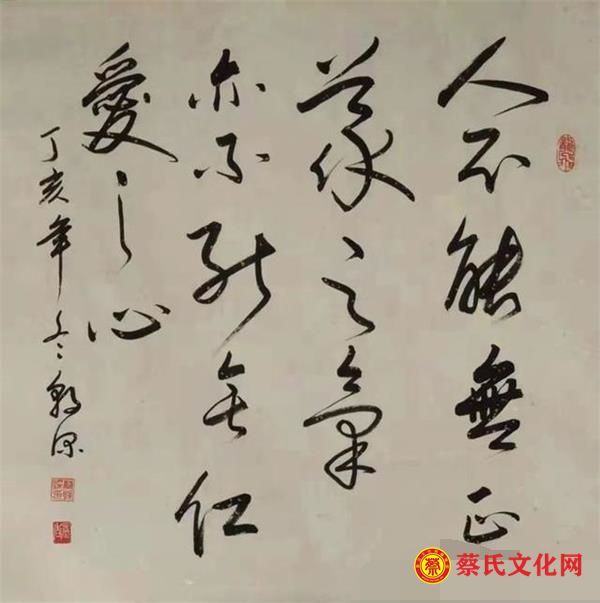 人不能無正
義之氣
亦不能無仁
愛之心
丁亥年冬
蔡氏文化网